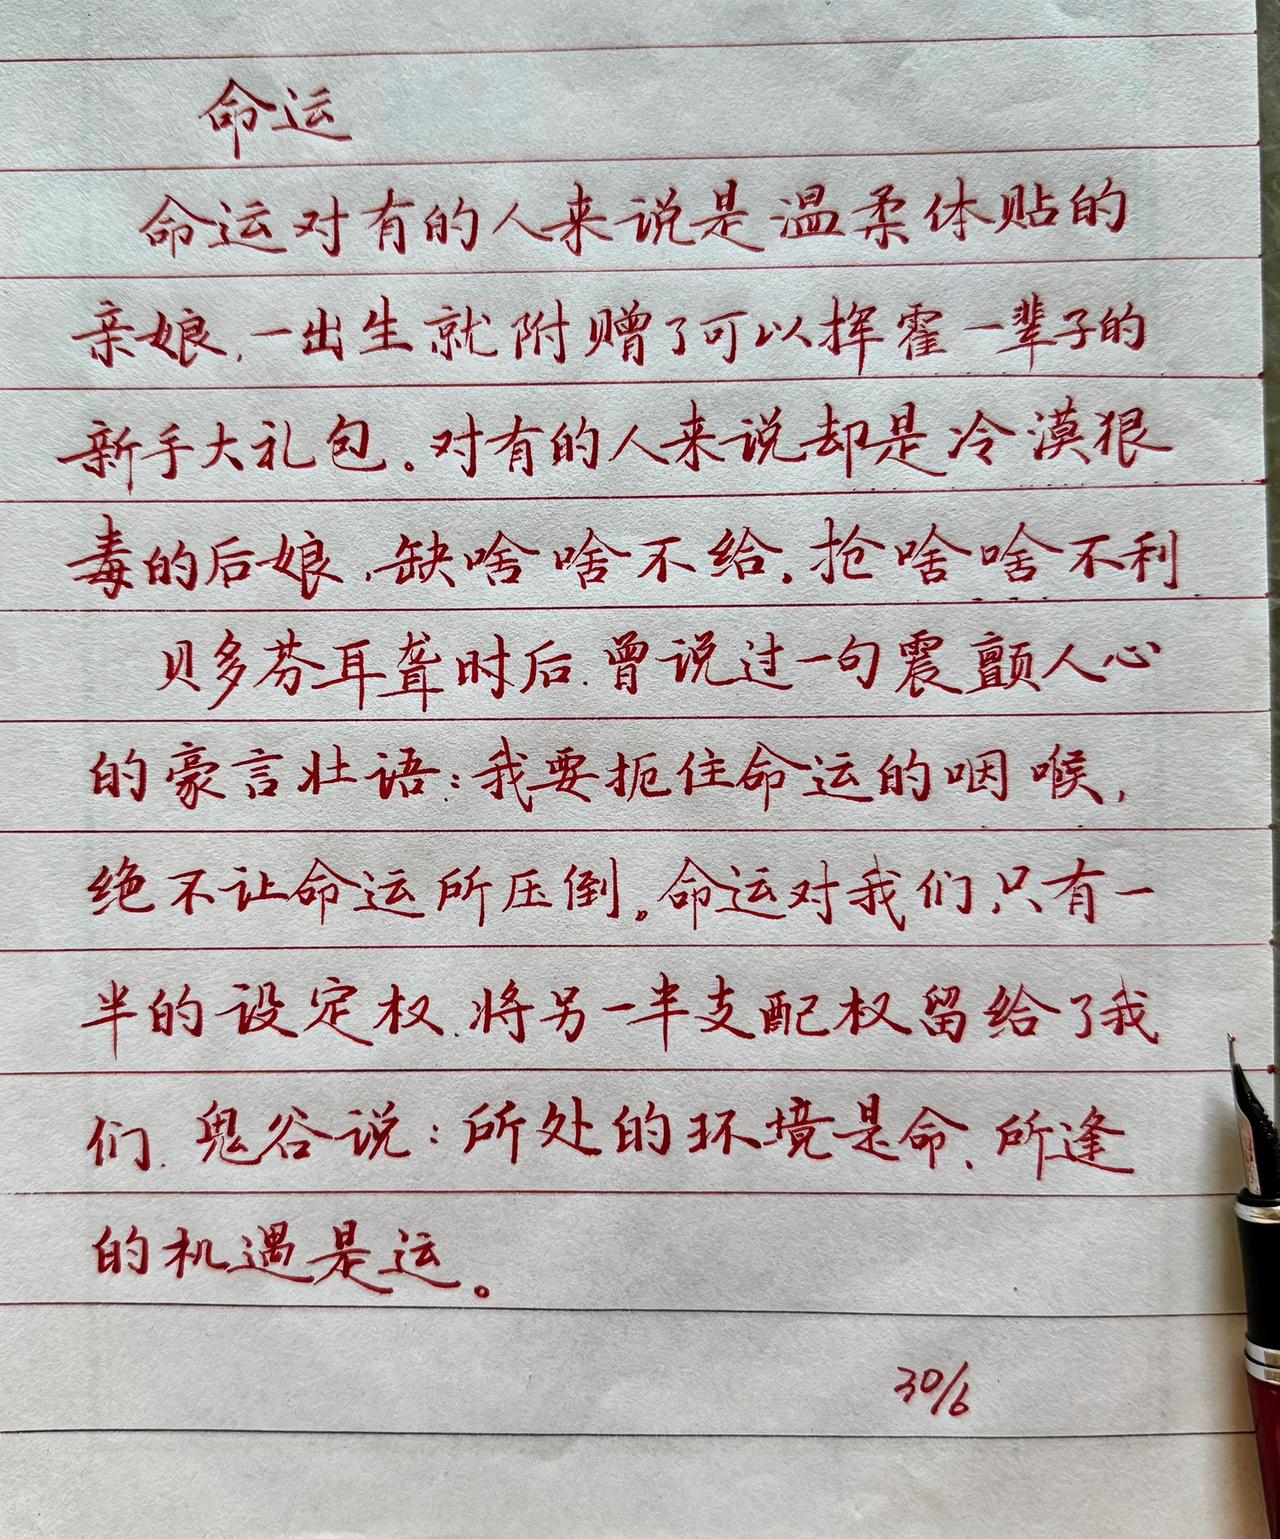 命运
命运对有的人来说是温柔体贴的
亲娘,一出生就附赠了可以挥霍一辈子的
新手大礼包。对有的人来说却是冷漠狠
毒的后娘,缺啥啥不给,抢啥啥不利
贝多芬耳聋时后.曾说过一句震颤人心
的豪言壮语:我要扼住命运的咽喉,
绝不让命运所压倒。命运对我们只有一
半的设定权.将另一半支配权留给了我
们.鬼谷说:所处的环境是命、所逢
的机遇是运。
30/6